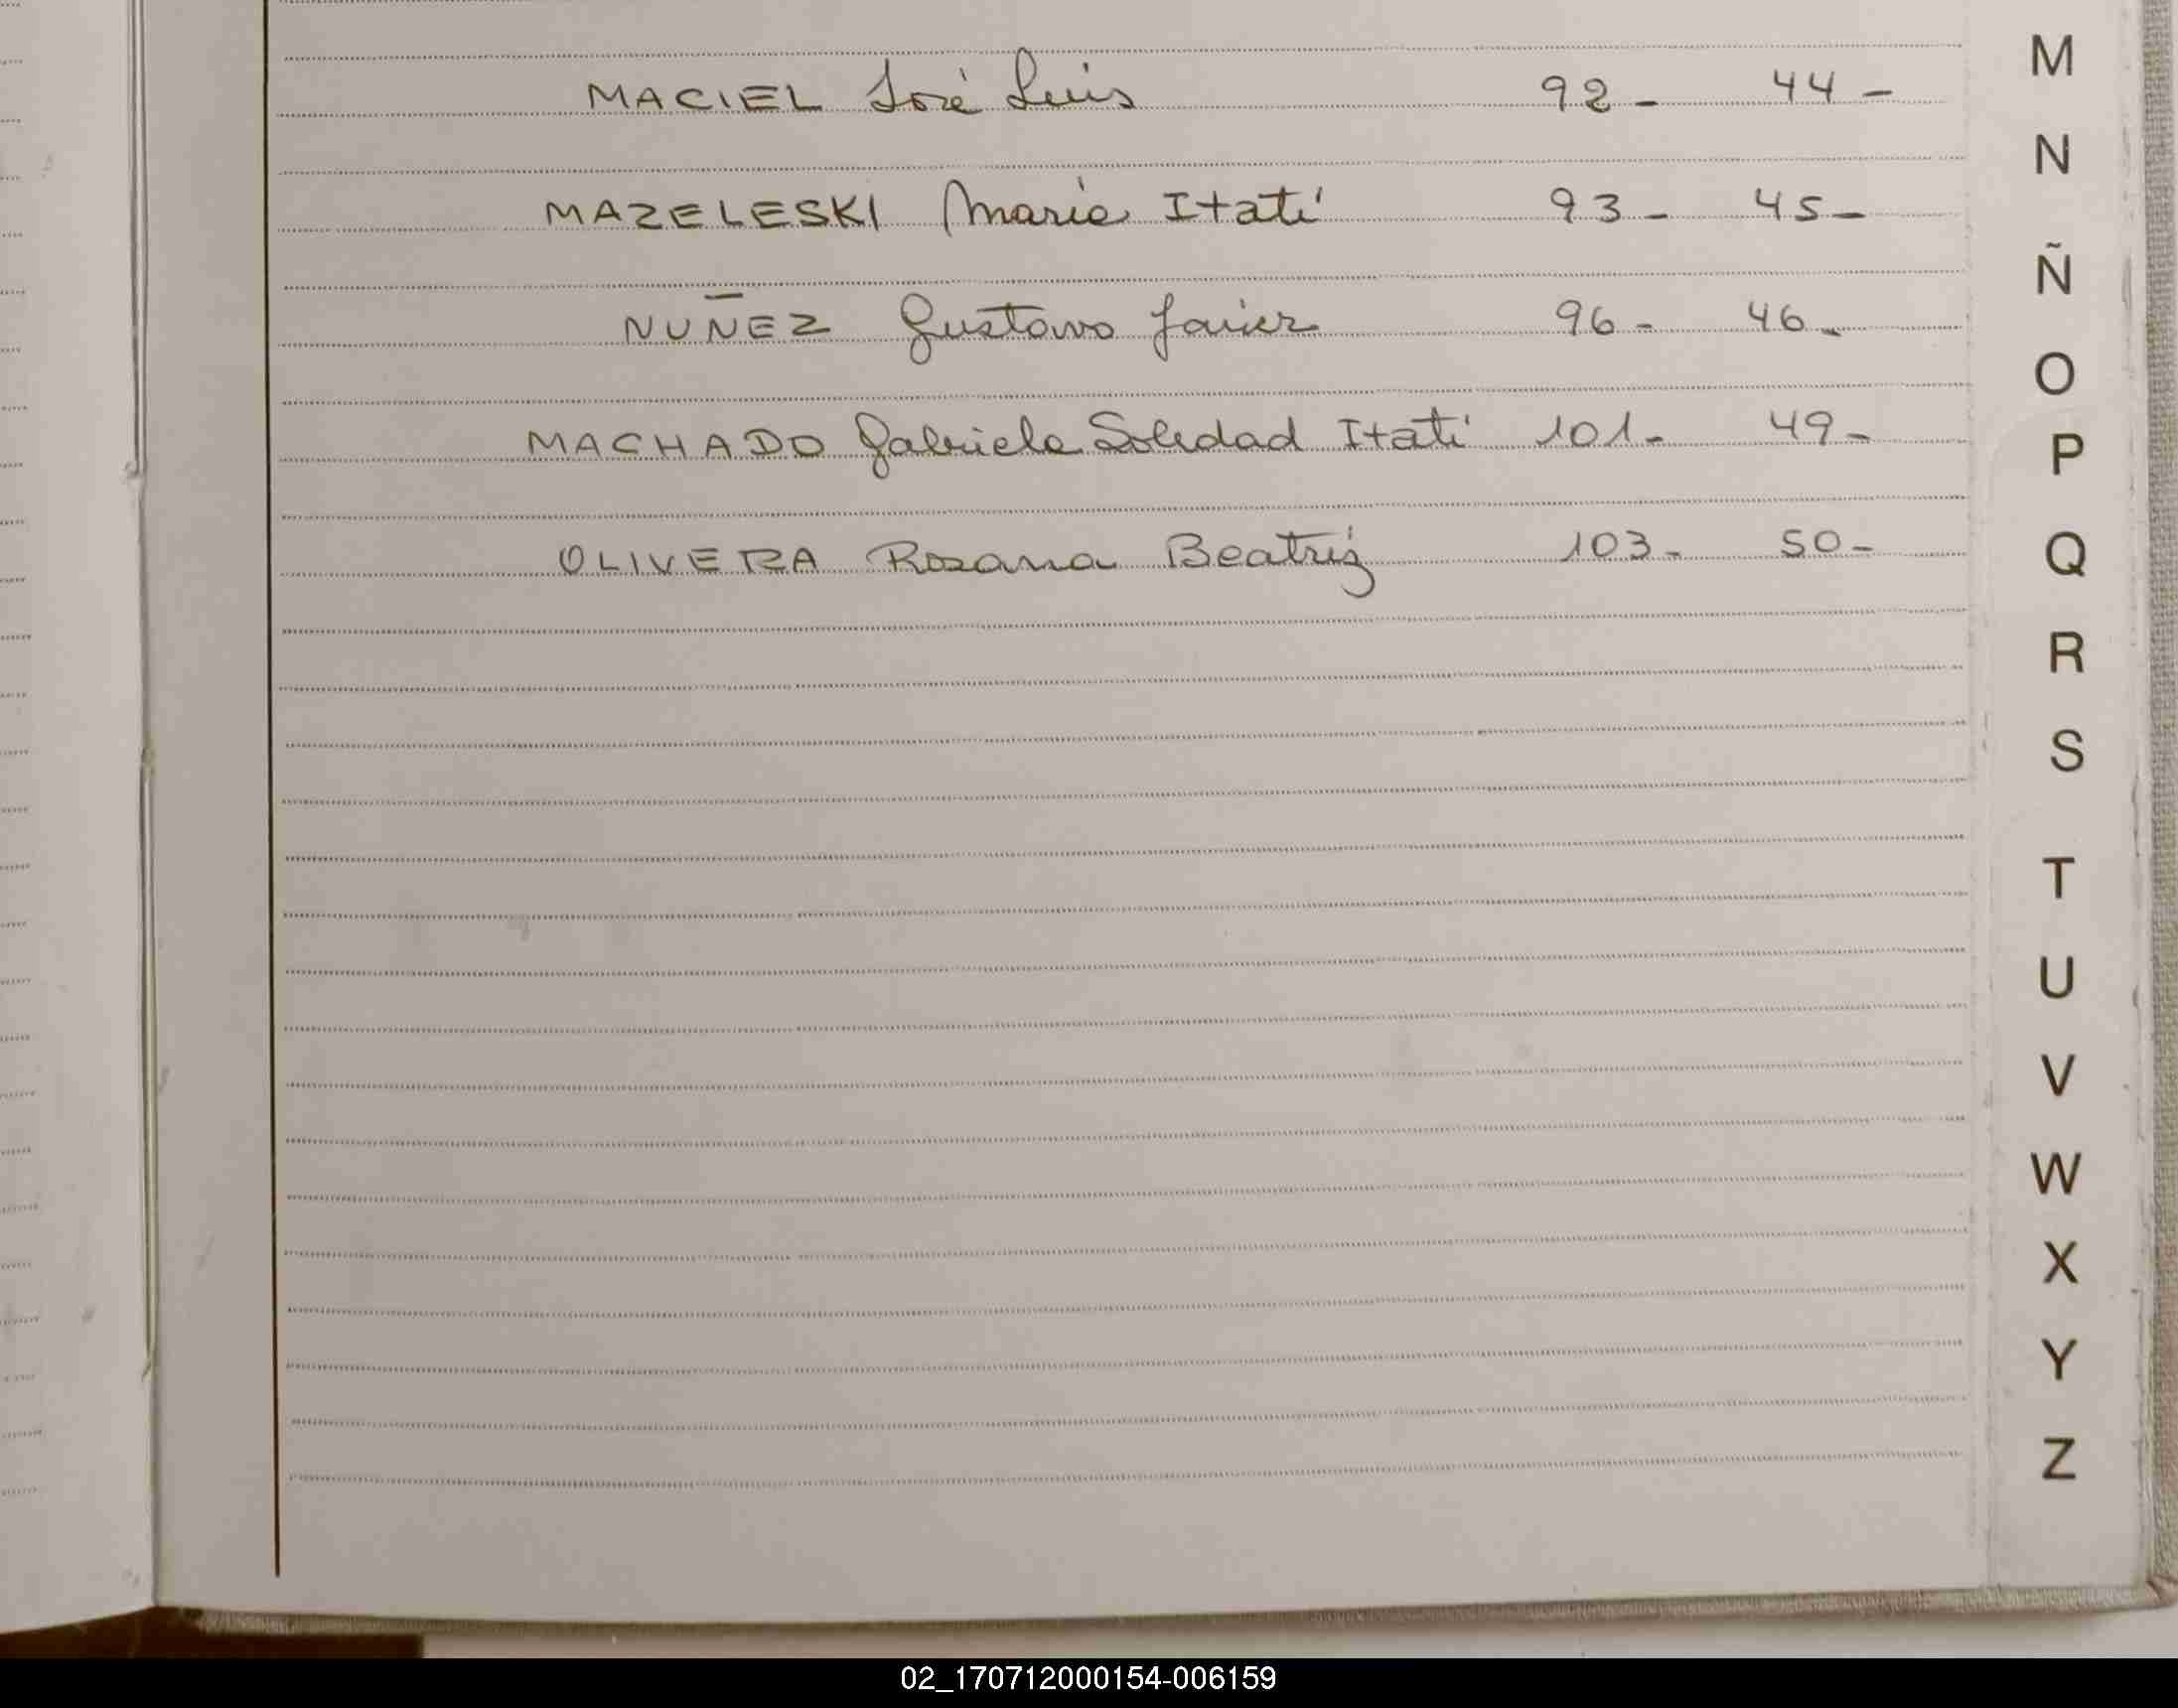 MACIEL José Luis 92- 44-
MAZELESKI María Itatí 93- 45-
NUÑEZ Gustavo Javier 96- 46-
MACHADO Gabriela Soledad Itatí 101- 49-
OLIVERA Rosana Beatriz 103- 50-
M
N
Ñ
O
P
Q
R
S
T
U
V
W
X
Y
Z
02_170712000154-006159